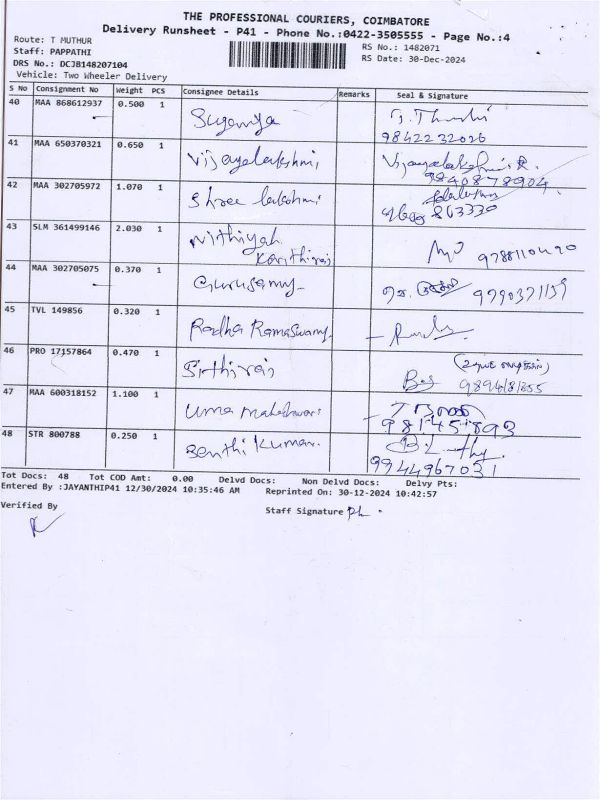 THE PROFESSIONAL COURIERS, COIMBATORE
Delivery Runsheet - P41 - Phone No.:0422-3505555 - Page No.:4
Route: T MUTHUR
RS No.: 1482071
Staff: PAPPATHI
RS Date: 30-Dec-2024
DRS No.: DCJB148207104
Vehicle: Two Wheeler Delivery
S No Consignment No Weight PCS Consignee Details Remarks Seal & Signature
40 MAA 868612937 0.500 1 Suganya
9842232026
41 MAA 650370321 0.650 1 Vijayalakshmi, Vijayalakshmi.R.
9840878904
42 MAA 302705972 1.070 1 Shree lakshmi
863330
43 SLM 361499146 2.030 1 Nithiyah
44 MAA 302705075 0.370 1 Gurusamy
45 TVL 149856 0.320 1 Radha Ramaswamy
46 PRO 17157864 0.470 1
47 MAA 600318152 1.100 1 Uma maheshwari
48 STR 800788 0.250 1 Senthil Kumar.
9944967031
Tot Docs: 48 Tot COD Amt: 0.00 Delvd Docs: Non Delvd Docs: Delvy Pts:
Entered By :JAYANTHIP41 12/30/2024 10:35:46 AM Reprinted On: 30-12-2024 10:42:57
Verified By
Staff Signature